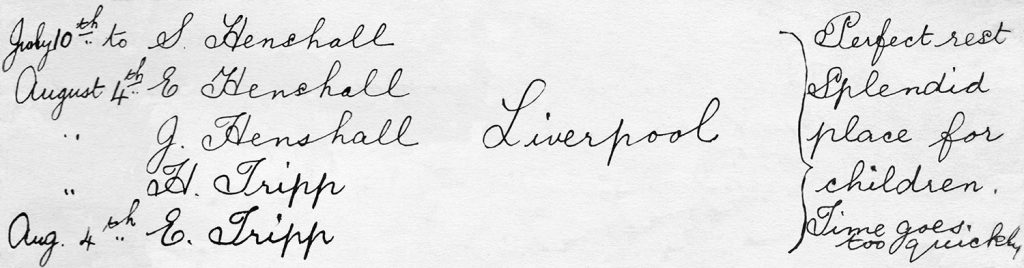 July 10th to S. Henshall Perfect rest
August 4th E Henshall Splendid
" J. Henshall Liverpool place for
" H. Tripp children.
Aug. 4th E. Tripp Time goes
too quickly